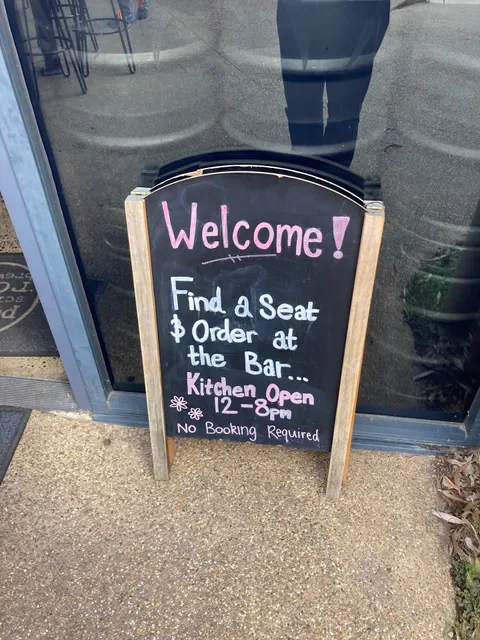 Welcome!
Find a Seat
& Order at
the Bar...
Kitchen Open
12-8pm
No Booking Required